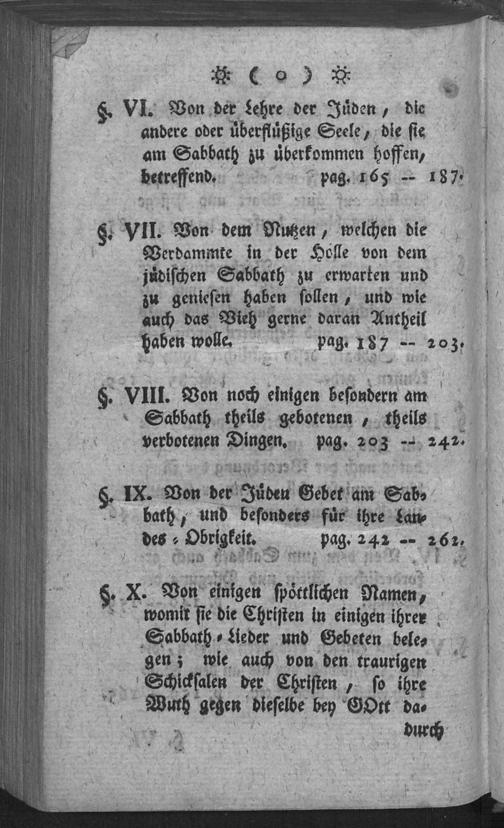 ( o )
§. VI. Von der Lehre der Jüden, die
andere oder überflüßige Seele, die sie
am Sabbath zu überkommen hoffen,
betreffend. pag. 165 -- 187.
§. VII. Von dem Nutzen, welchen die
Verdammte in der Hölle von dem
jüdischen Sabbath zu erwarten und
zu geniesen haben sollen, und wie
auch das Vieh gerne daran Antheil
haben wolle. pag. 187 -- 203.
§. VIII. Von noch einigen besondern am
Sabbath theils gebotenen, theils
verbotenen Dingen. pag. 203 -- 242.
§. IX. Von der Jüden Gebet am Sab-
bath, und besonders für ihre Lan-
des-Obrigkeit. pag. 242 -- 262.
§. X. Von einigen spöttlichen Namen,
womit sie die Christen in einigen ihrer
Sabbath-Lieder und Gebeten bele-
gen; wie auch von den traurigen
Schicksalen der Christen, so ihre
Wuth gegen dieselbe bey GOtt da-
durch